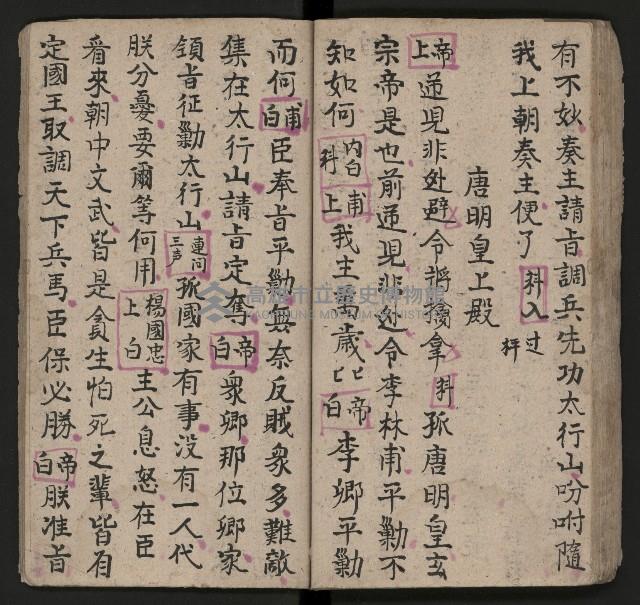 有不妙奏主請旨調兵先功太行山吩咐隨
我上朝奏主便了 科入 过 秤
唐明皇上殿
帝上 逆児非处避令 拿 科 孤唐明皇玄
宗帝是也前逆児非近令李林甫平勦不
知如何 内白科 甫上 我主 歲〻 帝白 李卿平勦
而何 甫白 臣奉旨平勦無奈反賊衆多難敵
集在太行山請旨定奪 帝白 衆卿那位卿家
領旨征勦太行山 連问三声 孤國家有事没有一人代
朕分憂要爾等何用 楊國忠上白 主公息怒在臣
看來朝中文武皆是貪生怕死之輩皆有
定國王取調天下兵馬臣保必勝 帝白 朕准旨
高雄市立歷史博物館
KAOHSIUNG MUSEUM OF HISTORY